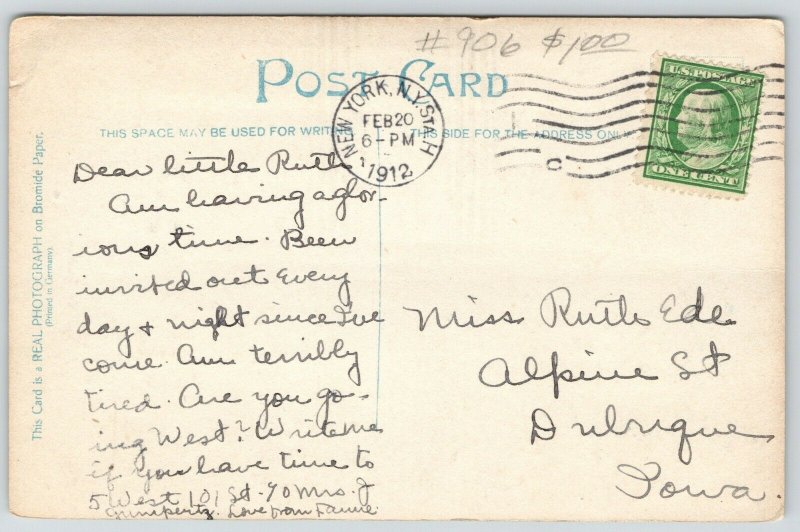 #906 $1.00
POST CARD
THIS SPACE MAY BE USED FOR WRITING
THIS SIDE FOR THE ADDRESS ONLY
NEW YORK, N.Y. STA H
FEB 20
6-PM
1912
U.S. POSTAGE
ONE CENT
This Card is a REAL PHOTOGRAPH on Bromide Paper.
(Printed in Germany).
Dear little Ruth
Am having a glor-
ious time. Been
invited out every
day & night since I've
come. Am terribly
tired. Are you go-
ing West? Write me
if you have time to
5 West 101 St. % Mrs. J
Love from
Miss Ruth Ede
Alpine St
Dubuque
Iowa.